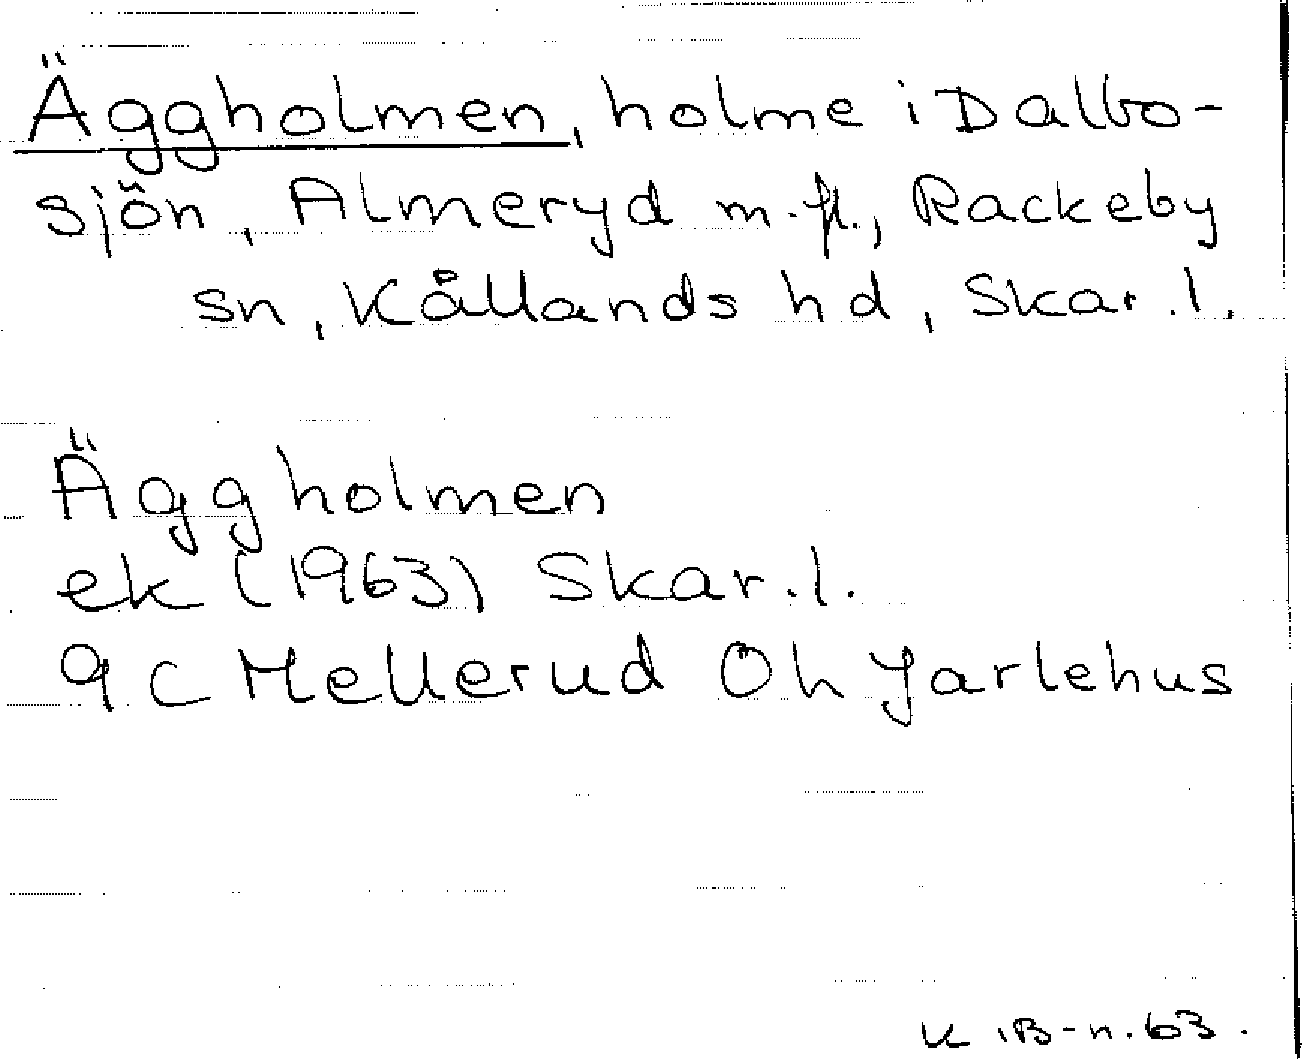 Äggholmen, holme i Dalbo-
sjön, Almeryd m.fl., Rackeby
sn, Kållands hd, Skar.l.
Äggholmen
ek (1963) Skar.l.
9c Mellerud Öh Jarlehus
K.B-n. 63.